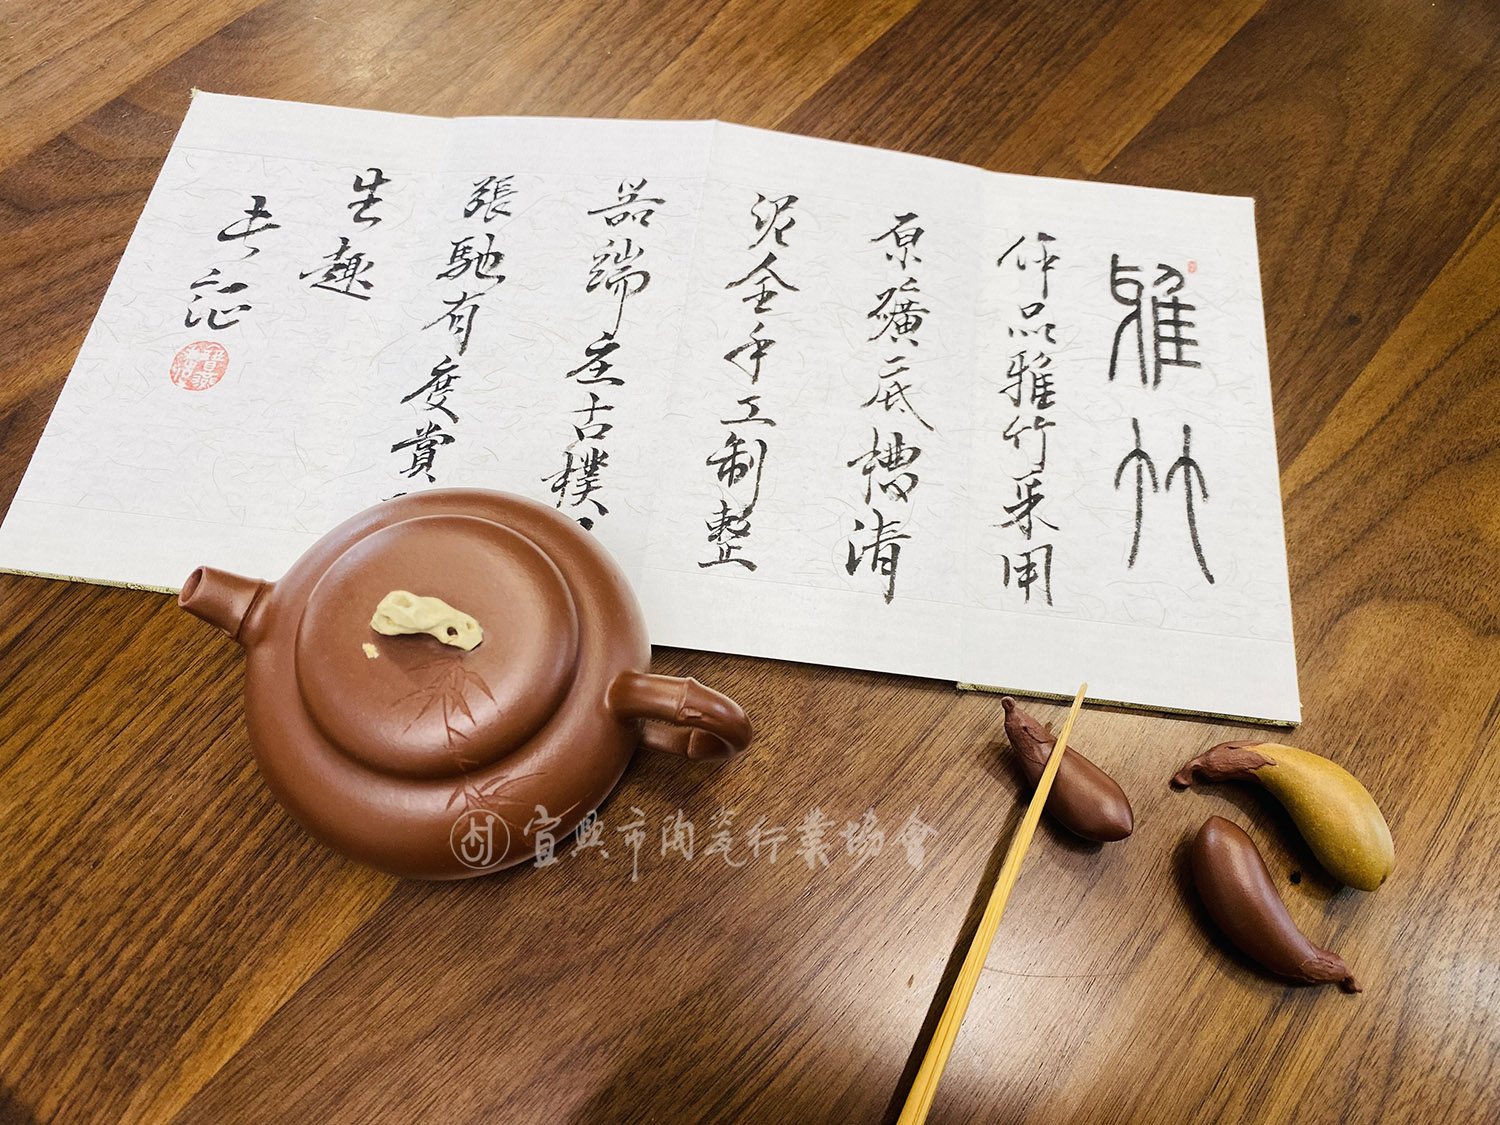 雅竹
作品雅竹采用
原礦底槽清
泥全手工制整
器端庄古樸
張馳有度賞
生趣
宜興市陶瓷行業協會